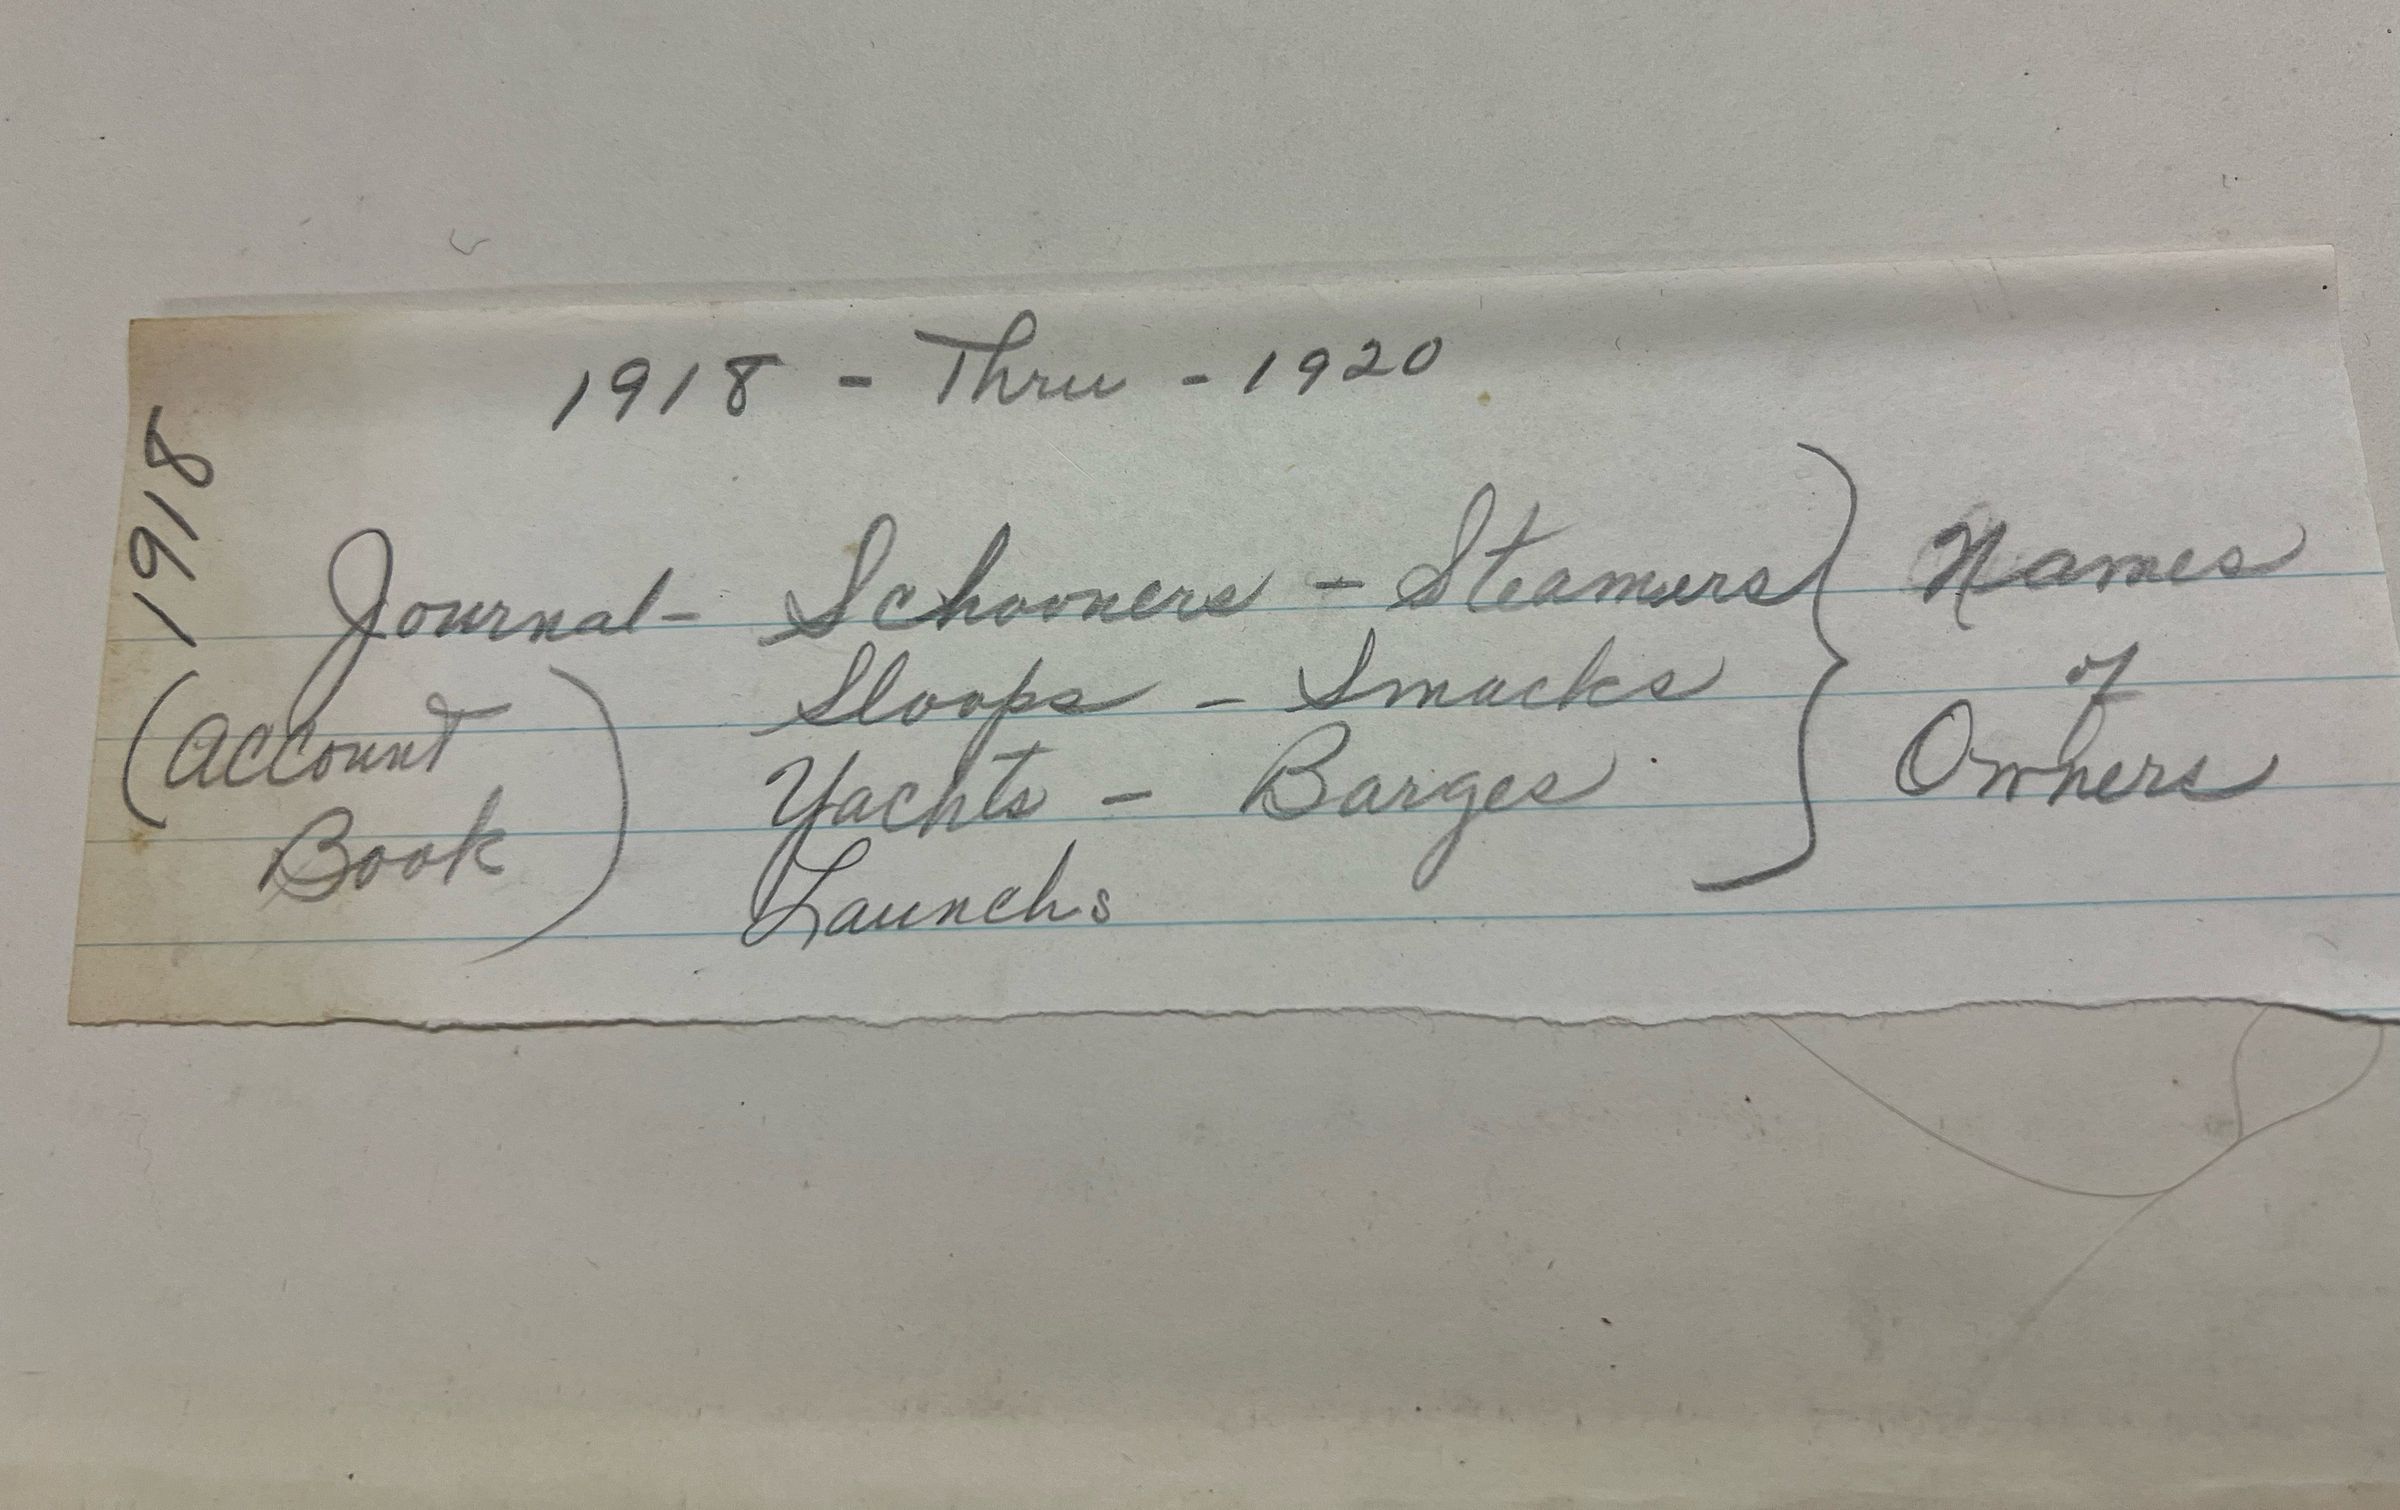 1918 - Thru - 1920
1918
Journal - Schooners - Steamers } Names
Sloops - Smacks of
(Account Yachts - Barges Owners
Book) Launchs